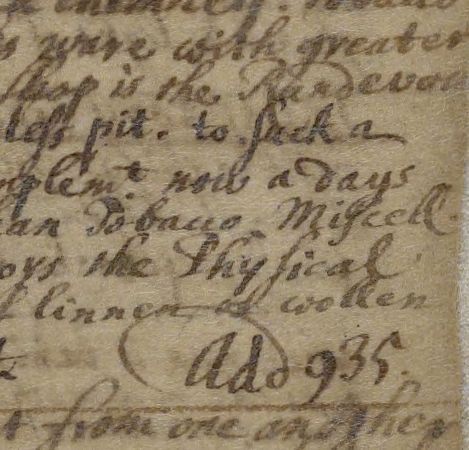 s ware with greater
shop is the Randevou
less pit. to suck a
mplemt now a days
an Tobacco. Miscell
ors the Physical
f linnen as wollen
Add 935.
t from one another